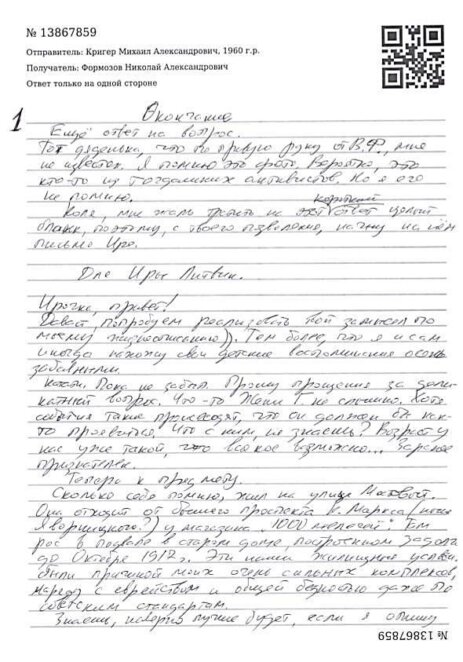 № 13867859
Отправитель: Кригер Михаил Александрович, 1960 г.р.
Получатель: Формозов Николай Александрович
Ответ только на одной стороне
1
Окончание
Ещё ответ на вопрос.
Тот дяденька, что по правую руку от В.Ф., мне
не известен. Я помню это фото. Вероятно, это
кто-то из тогдашних активистов. Но я его
не помню.
короткий
Коля, мне жаль тратить на этот ответ целый
бланк, поэтому, с твоего позволения, начну на нём
письмо Ире.
Для Иры Литвин.
Ирочка, привет!
Давай, попробуем реализовать твой замысел по
моему жизнеописанию)). Тем более, что я и сам
иногда нахожу свои детские воспоминания очень
забавными.
Кстати. Пока не забыл. Прошу прощения за дели-
катный вопрос. Что-то Жени Г. не слышно. Хотя
события такие происходят, что он должен бы как-
то проявиться. Что с ним, не знаешь? Возраст у
нас уже такой, что всякое возможно... Заранее
признателен.
Теперь к предмету.
Сколько себя помню, жил на улице
Она отходит от бывшего проспекта К. Маркса (ныне
Яворницкого?) у магазина „1000 мелочей". Там
рос в подвале в старом доме, построенном задолго
до Октября 1917г. Эти наши жилищные условия
были причиной моих очень сильных комплексов,
наряду с еврейством и общей бедностью даже по
советским стандартам.
Знаешь, наверно лучше будет, если я опишу
№ 13867859